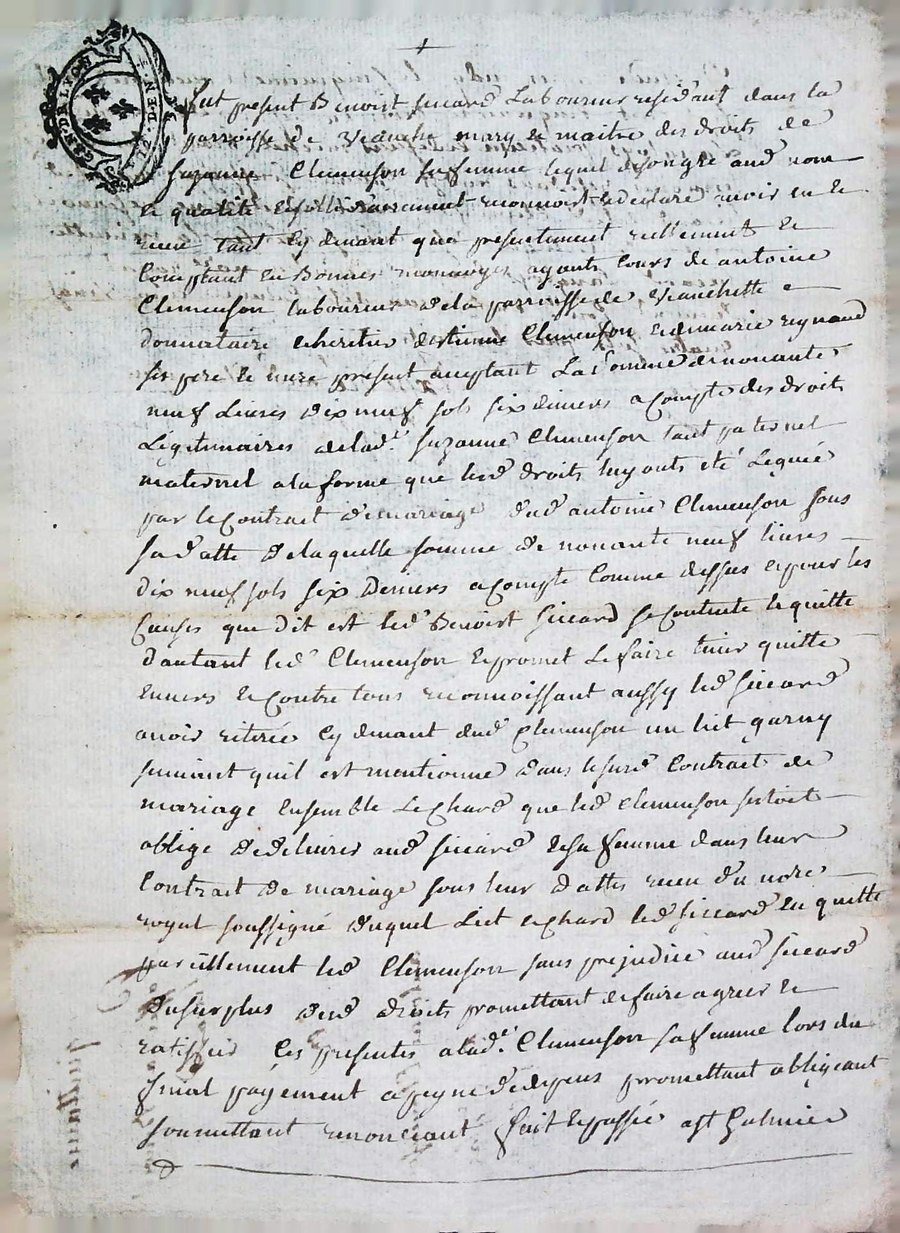 GEN. DE LYON
fut present Benoist Siccard Laboureur residant dans la
parroisse de Veauche mary et maitre des droits de
Suzanne Clemenson sa femme lequel de son gré aud nom
et qualité reconnoit et declare avoir eu et
receu tant cy devant que presentement reellement et
Comptant en Bonnes monnoyes ayants Cours de antoine
Clemenson laboureur de la parroisse de Veauchette
donnataire et heritier destienne Clemenson et de marie reynaud
ses pere et mere present acceptant La somme de nonante
neuf Livres dix neuf sols six deniers a Compte des droits
Légitimaires de lad.e Suzanne Clemenson tant paternel
maternel a la forme que lesd droits luy ont eté Legués
par le Contract de mariage dud antoine Clemenson sous
sa datte de laquelle somme de nonante neuf livres
dix neuf sols six Deniers a Compte Comme dessus et pour les
Causes que dit est led Benoist Siccard se Contente et quitte
d'autant led Clemenson et promet Le faire tenir quitte
envers et Contre tous reconnoissant aussy led Siccard
avoir retirée cy devant dud Clemenson un lict garny
suivant quil est mentionné dans le surd Contract de
mariage Ensemble Le Chard que led Clemenson sestoit
obligé de delivrer aud Siccard et sa femme dans leur
Contract de mariage sous leur dattes receu du nore
royal soussigné duquel Lict et Chard led Siccard en quitte
pareillement led Clemenson sans prejudice aud Siccard
du surplus desd droits promettant de faire agreer et
ratiffier Ces presentes a lad.e Clemenson sa femme lors du
final payement a peyne de depens promettant obligeant
soumettant renonceant fait et passé a st Galmier